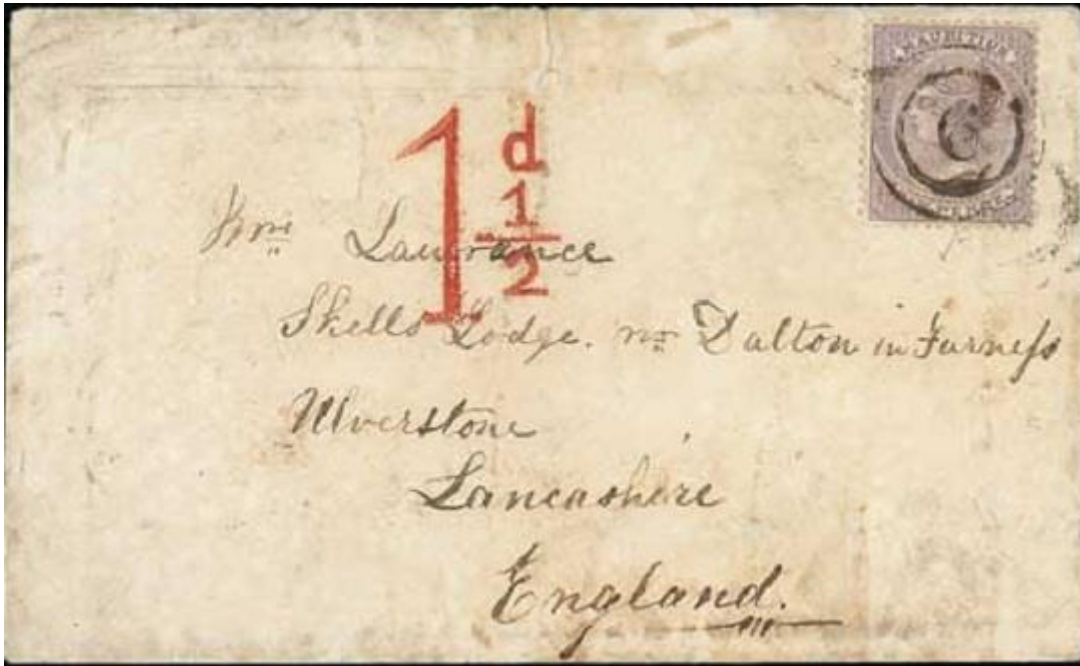 MAURITIUS
1d ½
Wm Lawrance
Skells Lodge. nr Dalton in Furness
Ulverstone
Lancashire
England.